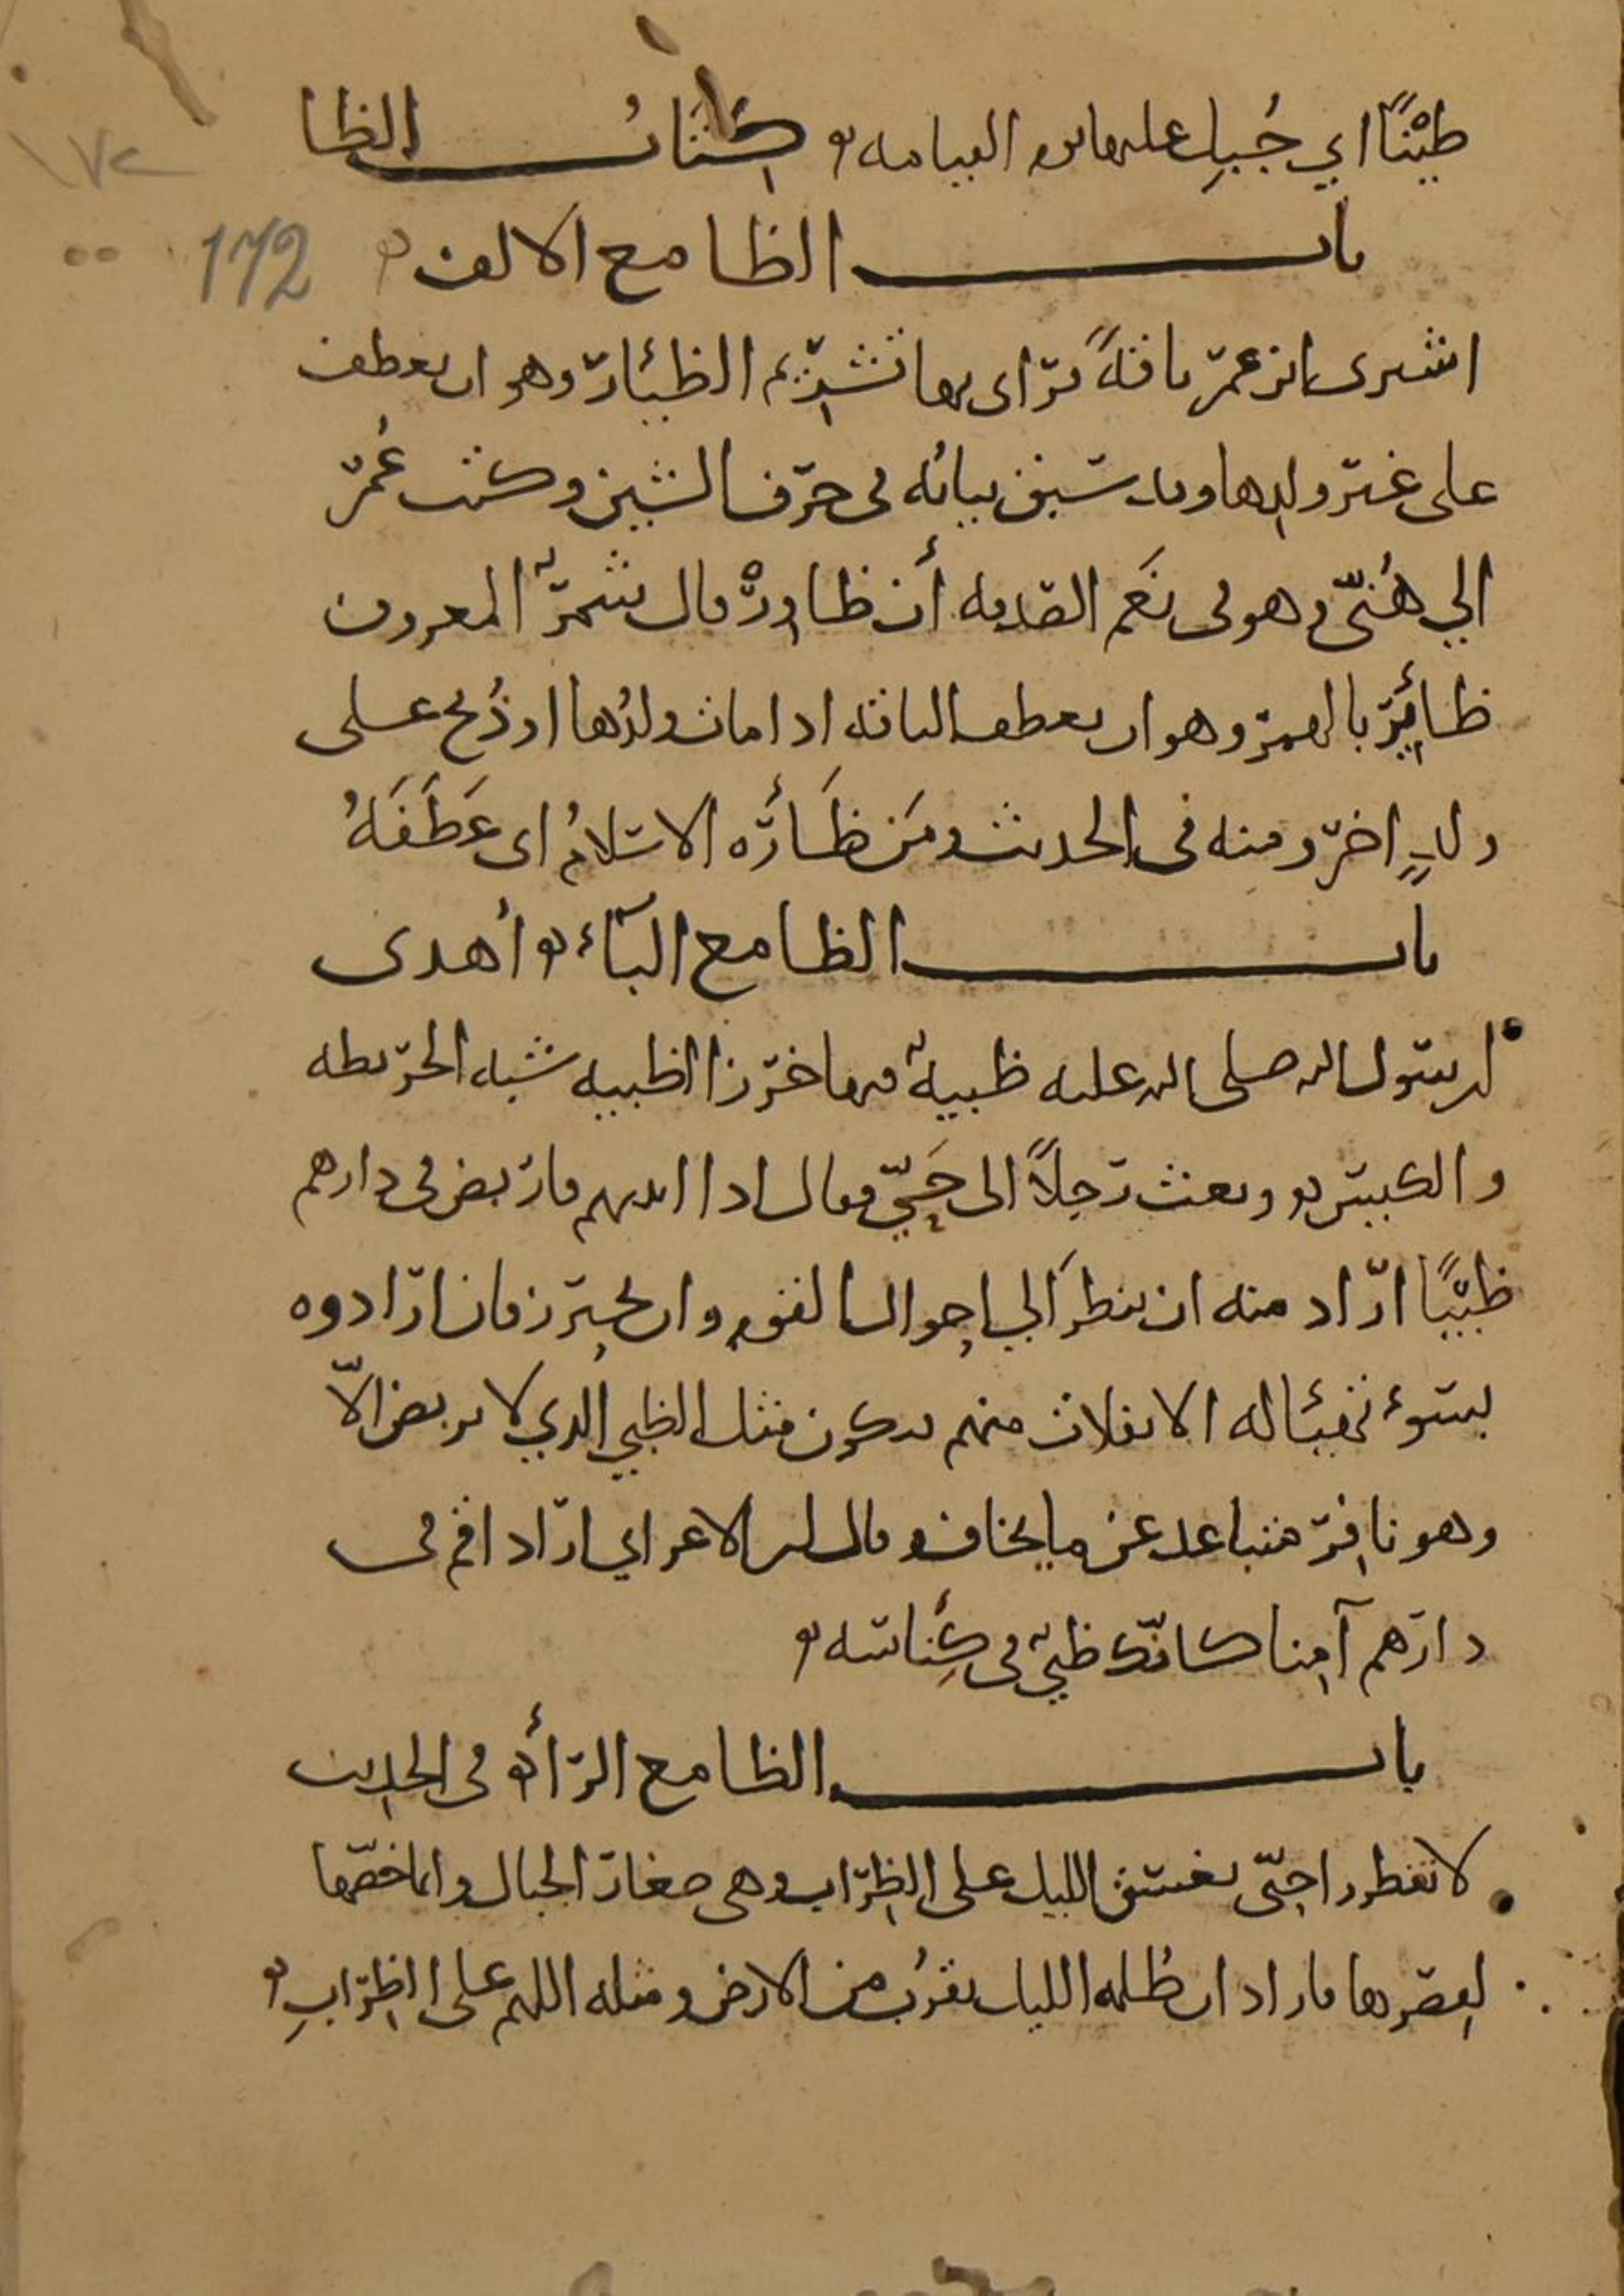 طِيْنًا اي جُبِل عليها يوم القيامه كتاب الظا
١٧٢
172
باب الظا مع الالف
اشترى ابن عمر ناقةً فراى بها تشريم الظئار وهو ان يعطف
على غير ولدها وقد سبق بيانه في حرف الشين وكتب عُمر
الي هُنَيّ وهو في نَعَم الصدقه أن ظاوِرْ قال شمرٌ المعروف
ظائِر بالهمز وهو ان يعطف الناقه اذا مات ولدُها او ذُبح على
ولدٍ اخر ومنه في الحديث ومَن ظَأَرَه الاسلامُ اى عَطَفَهُ
باب الظا مع البآء أهدى
لرسول الله صلى الله عليه ظبيةٌ فيها خرز الظبيه شبه الخريطه
والكيس وبعث رجلاً الى حَيّ فقال اذا اتيتهم فاربض في دارهم
ظبْيًا اراد منه ان ينظرَ الي احوال القوم وان يحترز فان ارادوه
بسوء تهيئا له الانفلات منهم فيكون مثل الظبي الذي لا يربض الاّ
وهو نافِر متباعد عن ما يخاف وقال ابن الاعرابي اراد اقم في
دارهم آمِنا كانّك ظبيٌ في كِناسه
باب الظا مع الرأ في الحديث
لا تفطروا حتّى يغسق الليل على الظِراب وهي صغار الجبال وانما خصّها
لقصرها فاراد ان ظُلمه الليل تقرُب من الارض ومثله اللهم على الظِرابِ